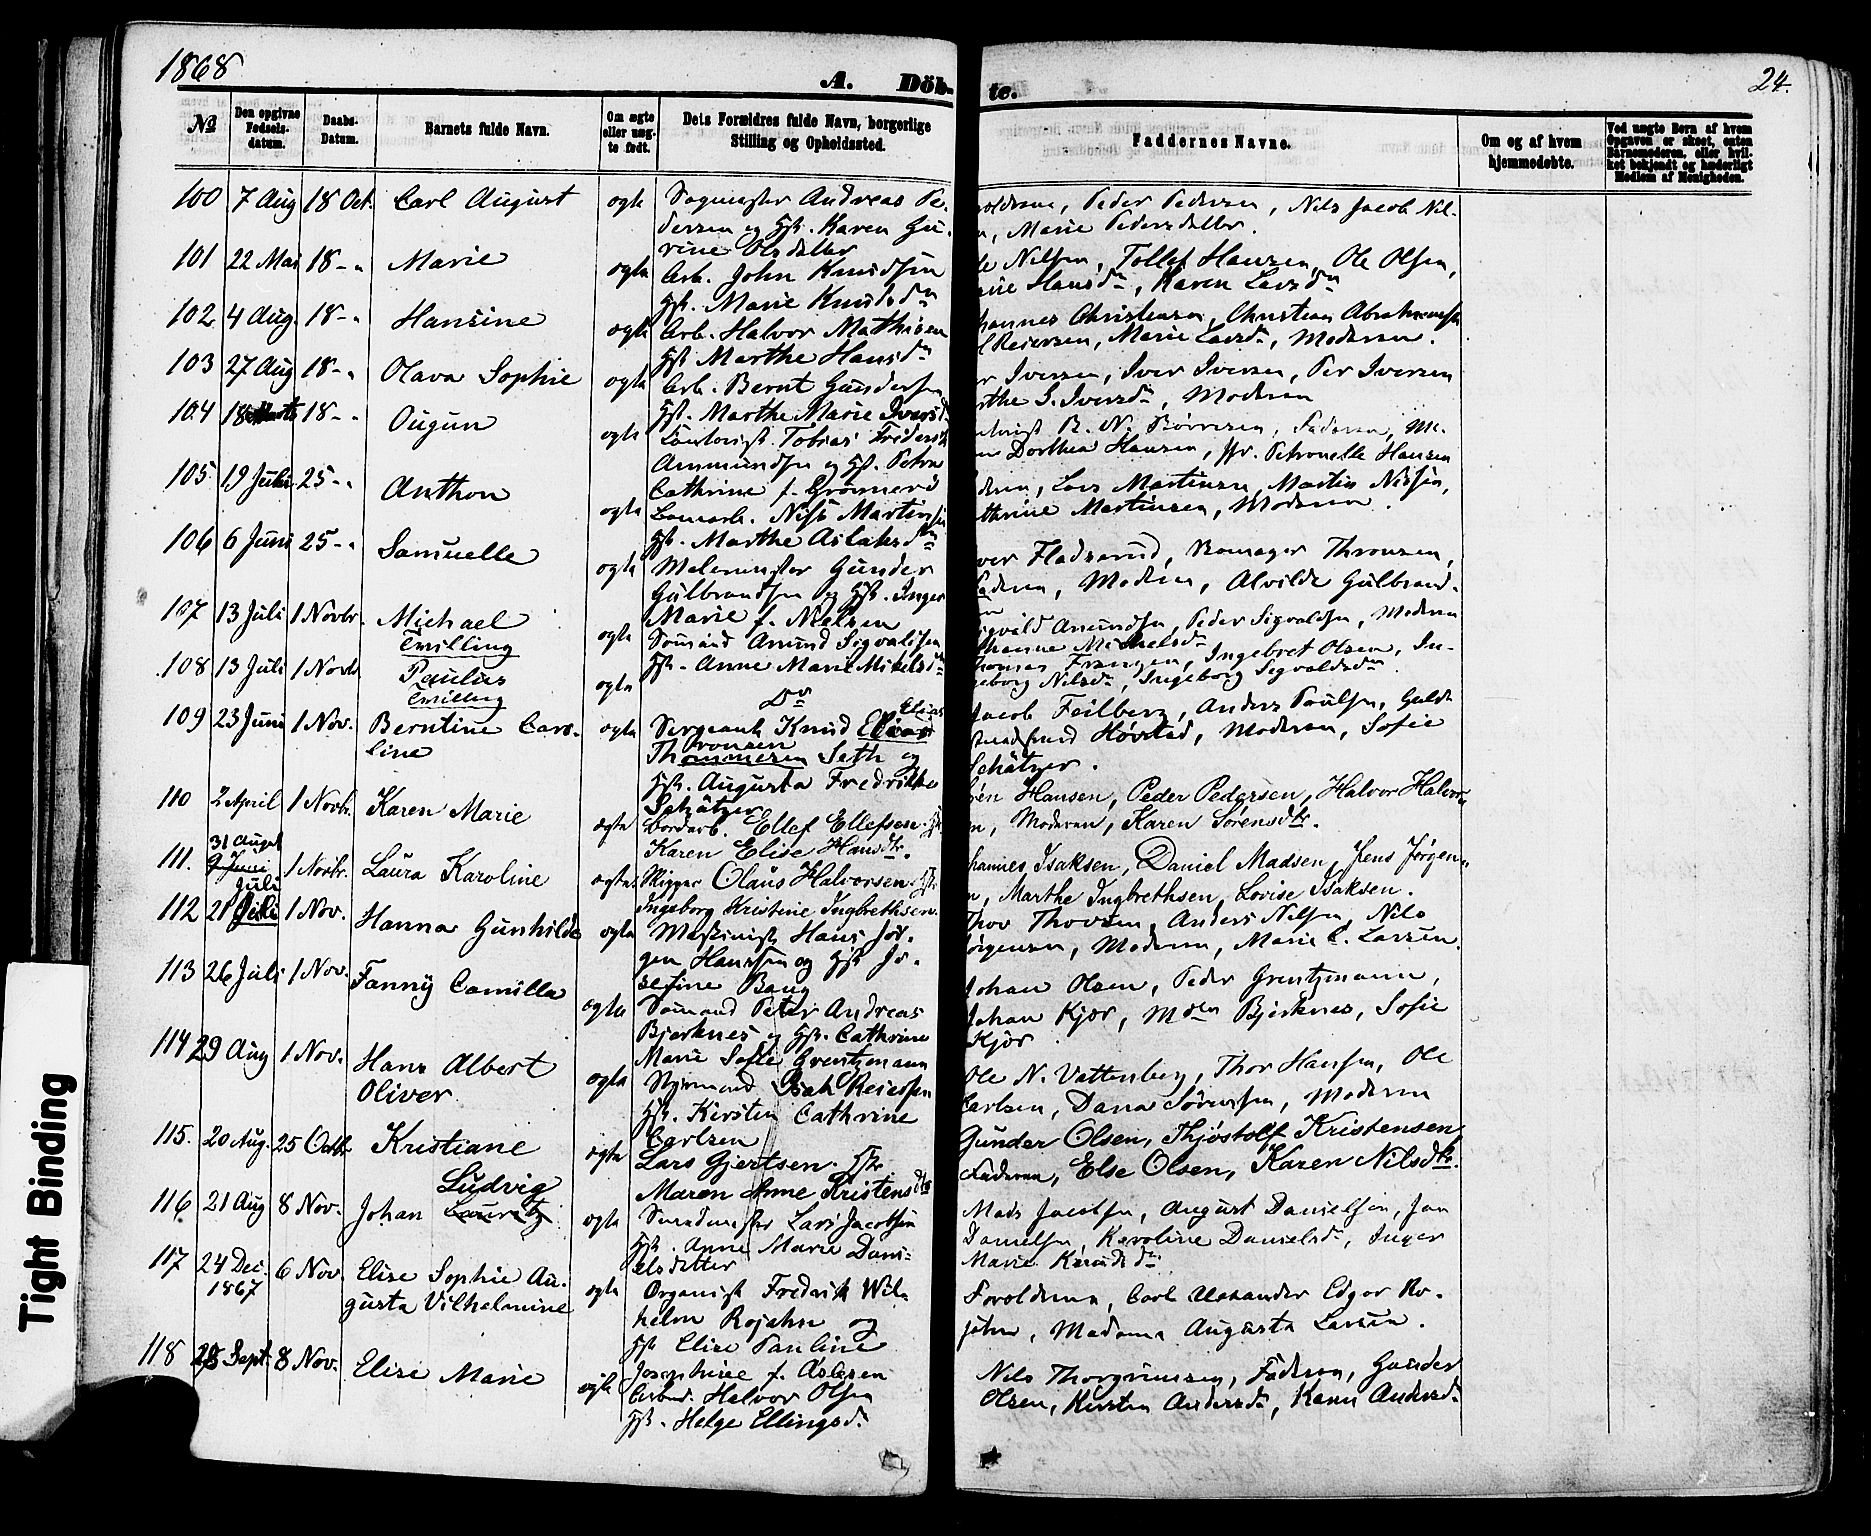 1868
A. Döb-
te.
24.
№
Den opgivne Fødsels-datum.
Daabs-Datum.
Barnets fulde Navn.
Om ægte eller uægte født.
Dets Forældres fulde Navn, borgerlige Stilling og Opholdssted.
Faddernes Navne.
Om og af hvem hjemmedøbte.
Ved uægte Børn af hvem Opgaven er skeet, enten Barnemoderen, eller hvilket bekjendt og hæderligt Medlem af Menigheden.
100 7 Aug 18 Oct. Carl August ægte Sagmester Andreas Pe-
dersen og Hst. Karen Gu-
rine Olsdatter
Peder Pedersen, Nils Jacob Nil-
Marie Pedersdatter.
101 22 Mai 18 - " Marie ægte Arb. John Knudsen
Hst. Marie Knudsdn
Nilsen, Tollef Hansen, Ole Olsen,
Hansdn, Karen Larsdn
102 4 Aug. 18 - " Hansine ægte Arb. Halvor Mathisen
Hst Marthe Hansdn
hannes Christensen, Christian Abrahamsen
Reiersen, Marie Larsdn, Moderen.
103 27 Aug 18 - " Olava Sophie ægte Arb. Bernt Gundersen
Hst. Marthe Marie Iversd
Iversen, Iver Iversen, Per Iversen
rthe S. Iversdn, Moderen
104 18 Marts 18 - " Ougun ægte Tobias Frederik
Ammundsen og Hst. Petra
Cathrine f. Grønnerød
B. N. Børresen, Faderen, Ma-
Dorthea Hansen, Jfr. Petronelle Hansen
105 19 Juli 25 - " Anthon ægte Nils Martinsen
Hst. Marthe Aslaksdn
Lars Martinsen, Martin Nilsen,
thrine Martinsen, Moderen.
106 6 Juni 25 - " Samuelle ægte Malermester Gunder
Gulbrandsen og Hst. Inger
Marie f. Nielsen
ver Fladserud, Thronsen,
aderen, Moderen, Alvilde Gulbrand-
107 13 Juli 1 Novbr. Michael
Tvilling
ægte Sømand Amund Sigvaldsen
Hst. Anne Marie Mikelsdn
igvald Amundsen, Peder Sigvaldsen, Moderen
hanne Michelsdn
108 13 Juli 1 Novb Paulus
Tvilling
ægte Do
homas Franzen, Ingebret Olsen, In-
geborg Nilsdn, Ingeborg Sigvaldsdn
109 23 Juni 1 Nov. Berntine Caro-
line
ægte Sergeant Knud Elias
Thronsen Seth og
Hst. Augusta Fredrikke
Schätzer
Jacob Feilberg, Anders Poulsen, Guld-
Høvstad, Moderen, Sofie
Schätzer.
110 2 April 1 Novbr. Karen Marie ægte Bordarb. Ellef Ellefsen. Hst
Karen Elise Hansdtr.
ören Hansen, Peder Pedersen, Halvor Halvor-
n, Moderen, Karen Sørensdtr.
111. 31 August
9 Juni
1 Novbr. Laura Karoline ægte Skipper Olaus Halvorsen. Hst
Ingeborg Kristine Ingbrethsen.
hannes Isaksen, Daniel Madsen, Jens Jørgen-
n, Marthe Ingbrethsen, Lovise Isaksen.
112 21 Juli 1 Nov. Hanna Gunhilde ægte Maskinist Hans Jør-
gen Hansen og Hst Jo-
sefine Bang
Thor Thorsen, Anders Nilsen, Nils
ørgensen, Moderen, Marie C. Larsen.
113 26 Juli 1 Nov. Fanny Camilla ægte Sømand Peter Andreas
Bjerknes og Hst. Cathrine
Marie Sofie Grentzmann
Johan Olsen, Peder Grentzmann,
Johan Kjær, Mdm Bjerknes, Sofie
Kjær
114 29 Aug 1 Nov. Hans Albert
Oliver
ægte Styrmand Isak Reiersen
Hst. Kirsten Cathrine
Carlsen
Ole N. Vattenberg, Thor Hansen, Ole
Carlsen, Dana Sørensen, Moderen
115. 20 Aug. 25 Octbr. Kristiane ægte Lars Gjertsen. Hst
Maren Anne Kristensdtr
Gunder Olsen, Thjøstolf Kristensen
Faderen, Else Olsen, Karen Nilsdtr.
116 21 Aug 8 Nov. Johan Ludvig
Lauritz
ægte Smedmester Lars Jacobsen
Hst. Anne Marie Dani-
elsdatter
Mads Jacobsen, August Danielsen, Jan
Danielsen, Karoline Danielsdn, Inger
Marie Knudsdn
117 24 Dec.
1867
6 Nov. Elise Sophie Au-
gusta Vilhelmine
ægte Organist Fredrik Wil-
helm Rojahn og
Hst Elise Pauline
Josephine f. Aslesen
Forældrene, Carl Alexander Edgar Ro-
jahn, Madame Augusta Larsen.
118 28 Sept. 8 Nov. Elise Marie ægte Arbmd. Halvor Olsen
Hst. Helge Ellingsdn
Nils Thorgrimsen, Faderen, Gunder
Olsen, Kirsten Andersdn, Karen Andersdn
Tight Binding